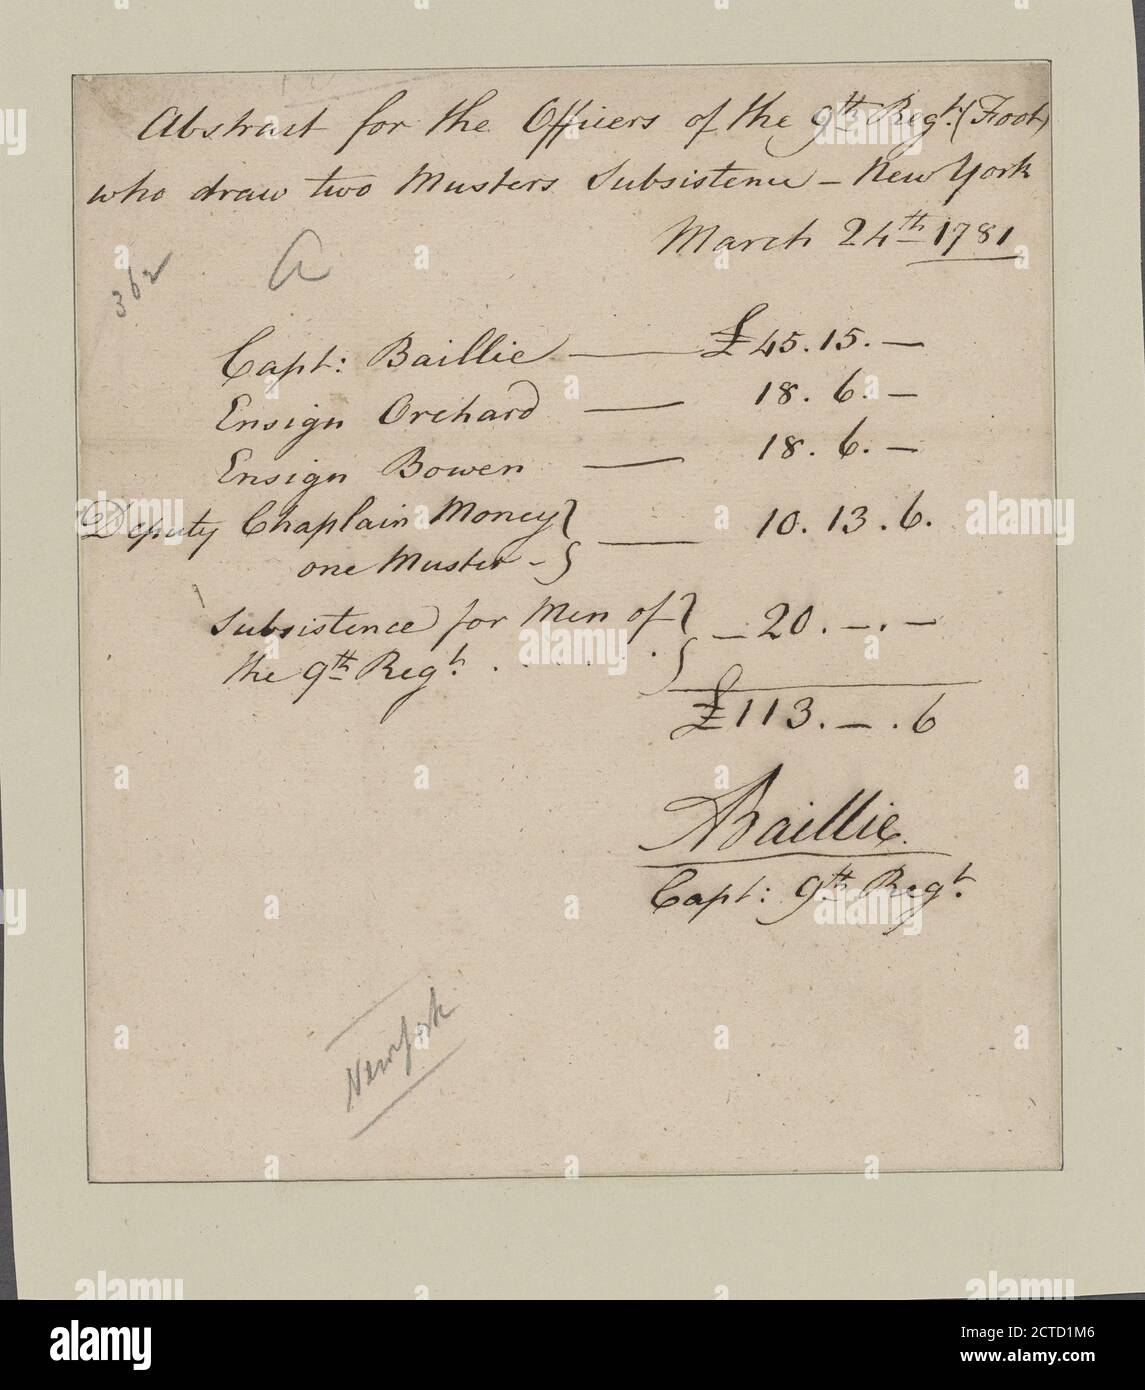 Abstract for the Officers of the 9th Regt. (Foot)
who draw two Musters Subsistence – New York
March 24th 1781
362
a
Capt: Baillie — £45.15.—
Ensign Orchard — 18. 6. —
Ensign Bowen — 18. 6. —
Deputy Chaplain Money } — 10. 13. 6.
one Muster – }
Subsistence for Men of } — 20. —. —
the 9th Regt. . . . . . }
£113. — . 6
ABaillie.
Capt: 9th Regt.
New York
alamy
Image ID: 2CTD1M6
www.alamy.com